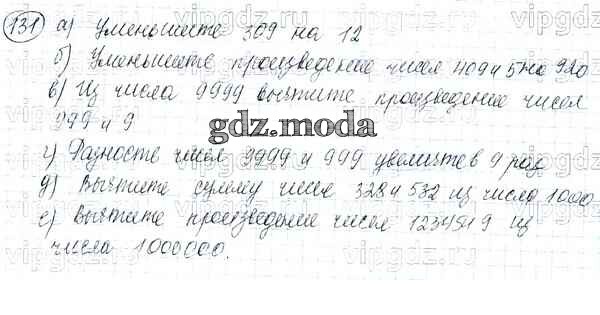 131 а) Уменьшите 309 на 12
б) Уменьшите произведение чисел 409 и 5 на 920
в) Из числа 9999 вычтите произведение чисел
999 и 9
gdz.moda
г) Разность чисел 9999 и 999 увеличьте в 9 раз
д) Вычтите сумму чисел 328 и 532 из числа 1000
е) Вычтите произведение чисел 12345 и 9 из
числа 1000000.